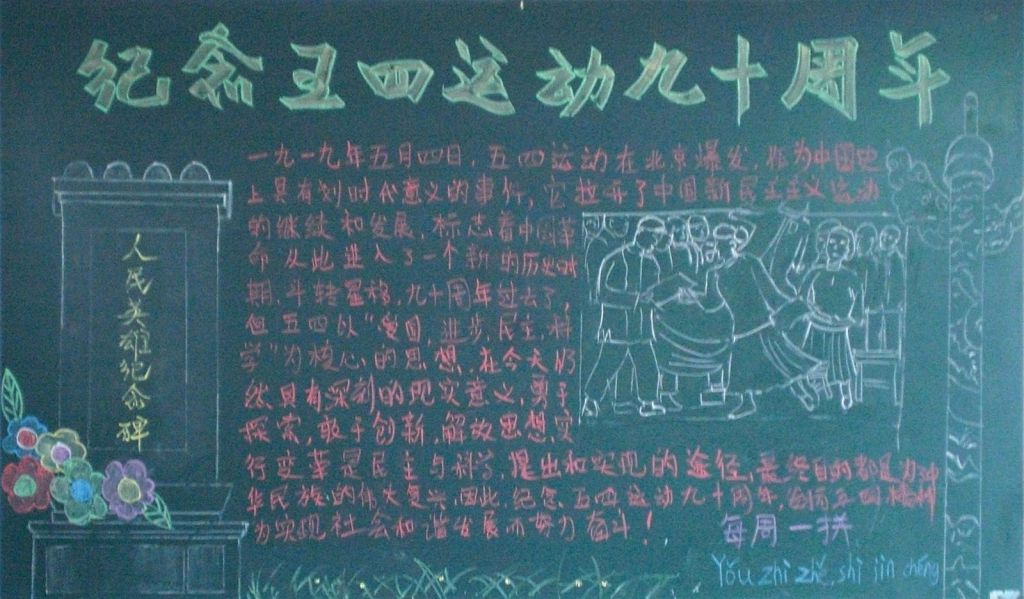 纪念五四运动九十周年
一九一九年五月四日,五四运动在北京爆发,作为中国史
上具有划时代意义的事件,它拉开了中国新民主主义运动
的继续和发展,标志着中国革
命从此进入了一个新的历史时
期,斗转星移,九十周年过去了,
但五四以"爱国,进步,民主,科
学"为核心的思想,在今天仍
然具有深刻的现实意义,勇于
探索,敢于创新,解放思想,实
行变革是民主与科学,提出和实现的途径,最终目的都是为中
华民族的伟大复兴,因此,纪念五四运动九十周年,
为实现社会和谐发展而努力奋斗!
人民英雄纪念碑
每周一拼
Yǒu zhì zhě, shì jìn chéng